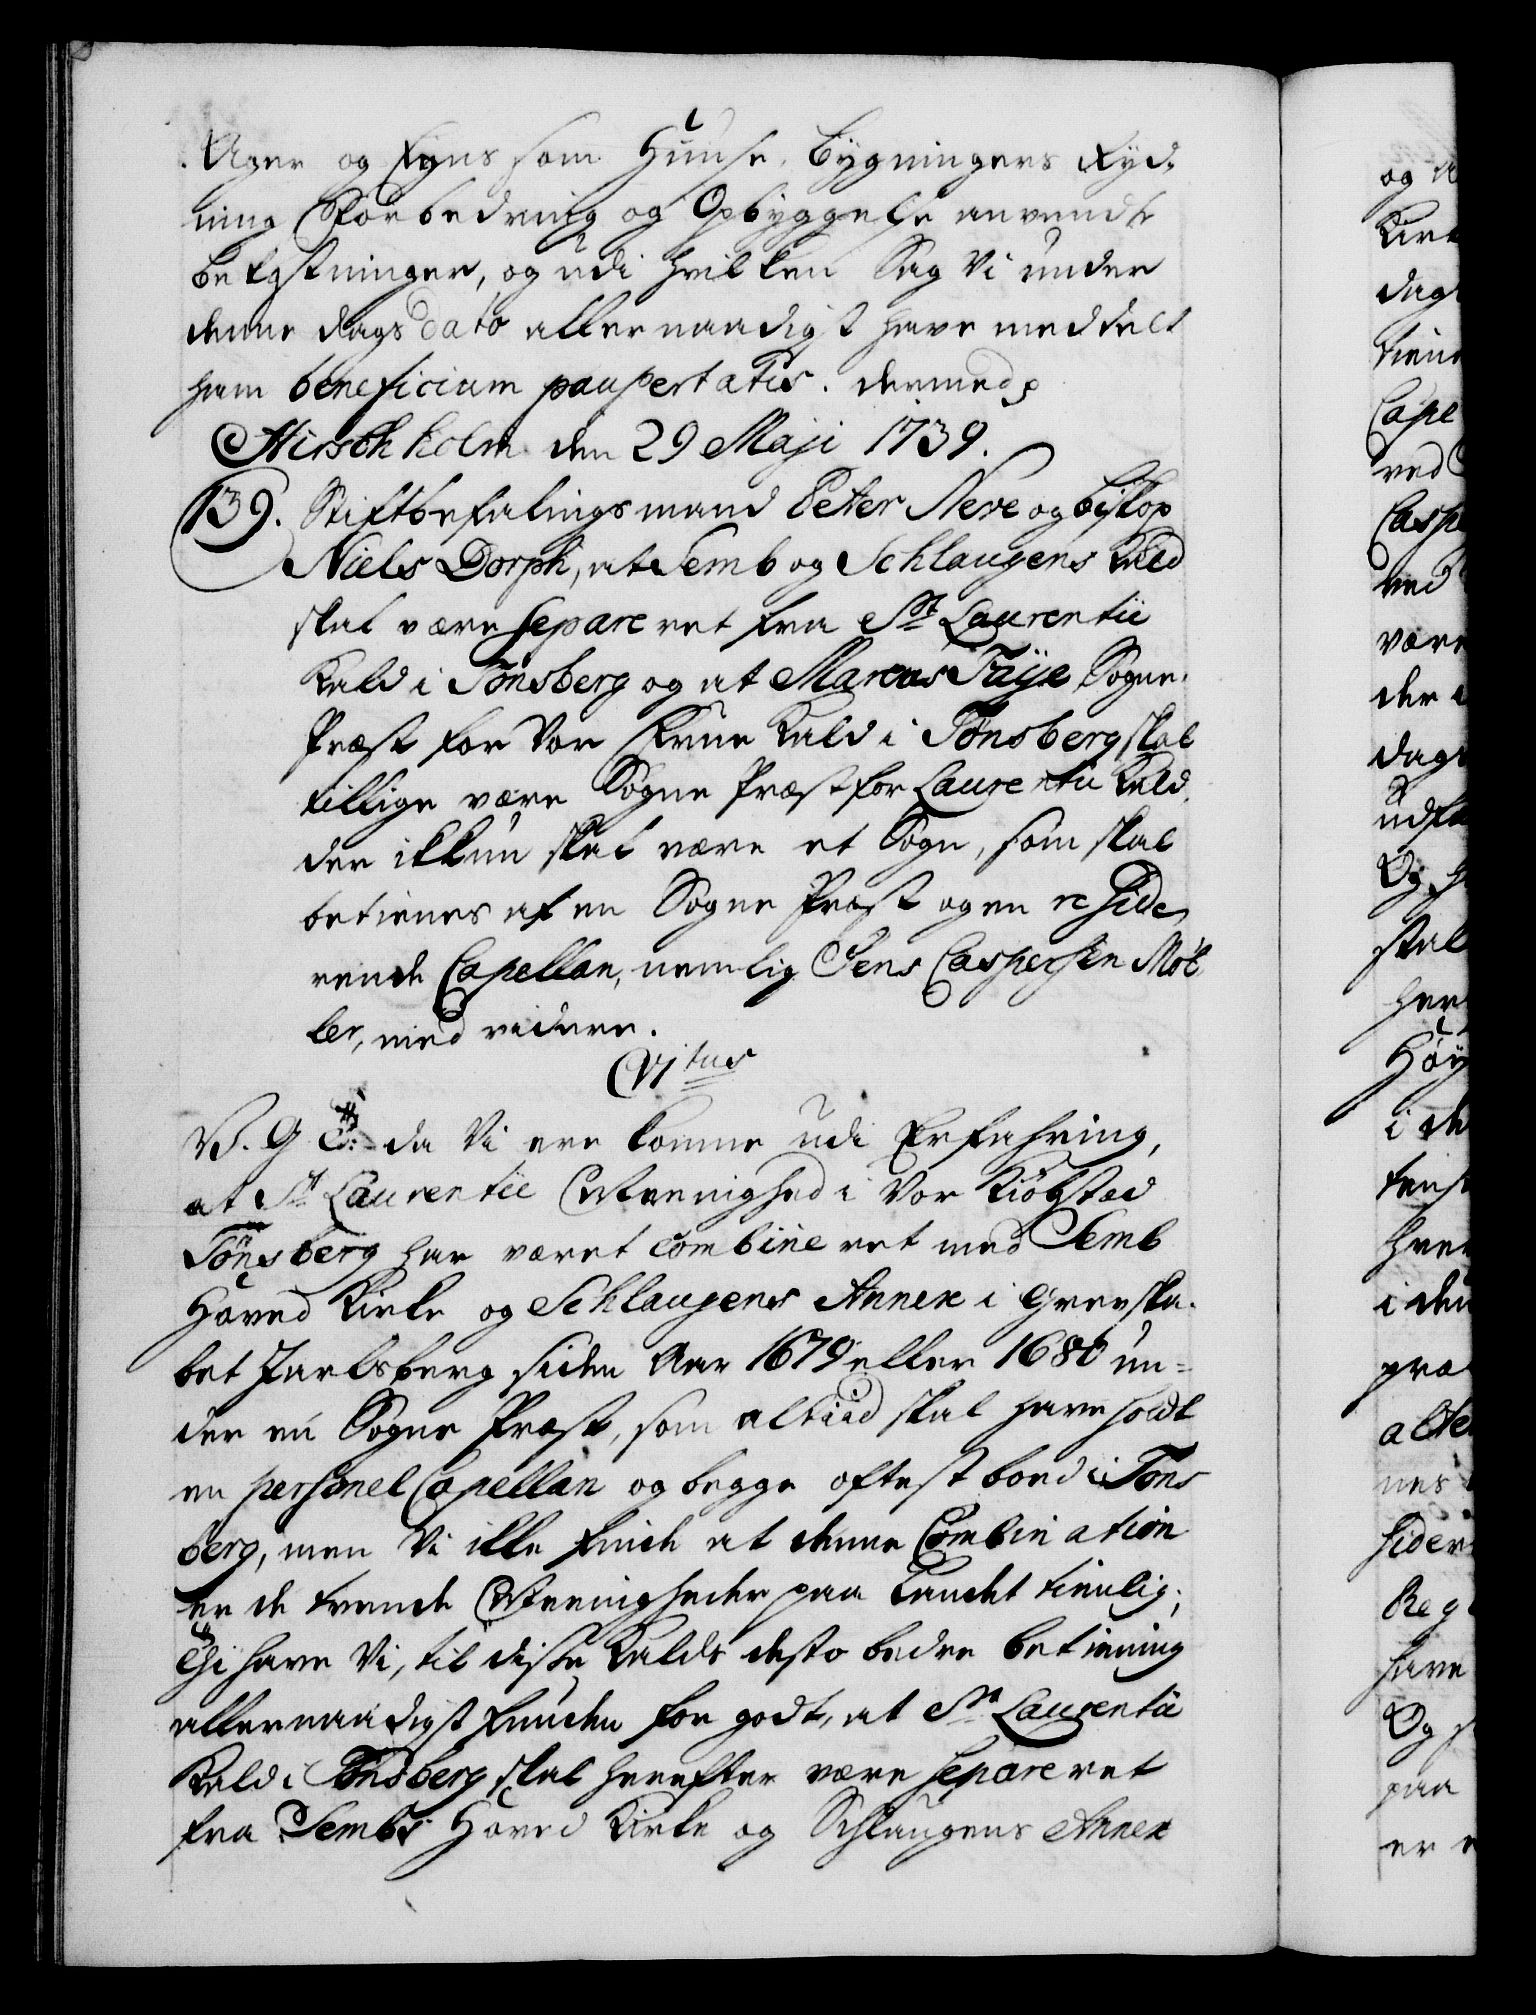 Ager og Engs som Huuse, Bygningers Ryd-
ning Forbedring og Opbyggelse anvendte
bekostninger, og udi hvilken Sag Vi under
denne dags dato allernaadigst have meddelt
ham beneficium paupertatis. dermed
Hirschholm den 29 Maji 1739.
139. Stiftbefalingsmand Peter Neve og biskop
Niels Dorph, at Semb og Schlaugens Kald
skal være separeret fra St. Laurentii
Kald i Tønsberg og at Marcus Faÿe Sogne-
Præst for Vor Frue Kald i Tønsberg skal
tillige være Sogne Præst for Laurentii Kald,
der ikkun skal være et Sogn, som skal
betienes af en Sogne Præst og en reside,
rende Capellan, nemlig Jens Caspersen Møl
ler, med videre.
C Vitus
V. G T: da Vi ere komne udi Erfahring,
at St. Laurentii Meenighed i Vor Kiøbstad
Tønsberg har været combineret med Semb
Hoved Kirke og Schlaugens Annex i Grevska-
bet Jarlsberg siden Aar 1679 eller 1680 un-
der en Sogne Præst, som altiid skal have holdt
en personel Capellan og begge oftest boed i Tøns
berg, men Vi ikke finde at denne Combination
er de trende Meenigheder paa Landet tienlig;
Thi have Vi, til disse Kalds desto bedre betiening
allernaadigst funden for godt, at St. Laurentii
Kald i Tønsberg skal herefter være separeret
fra Sembs Hoved Kirke og Schlaugens Annex